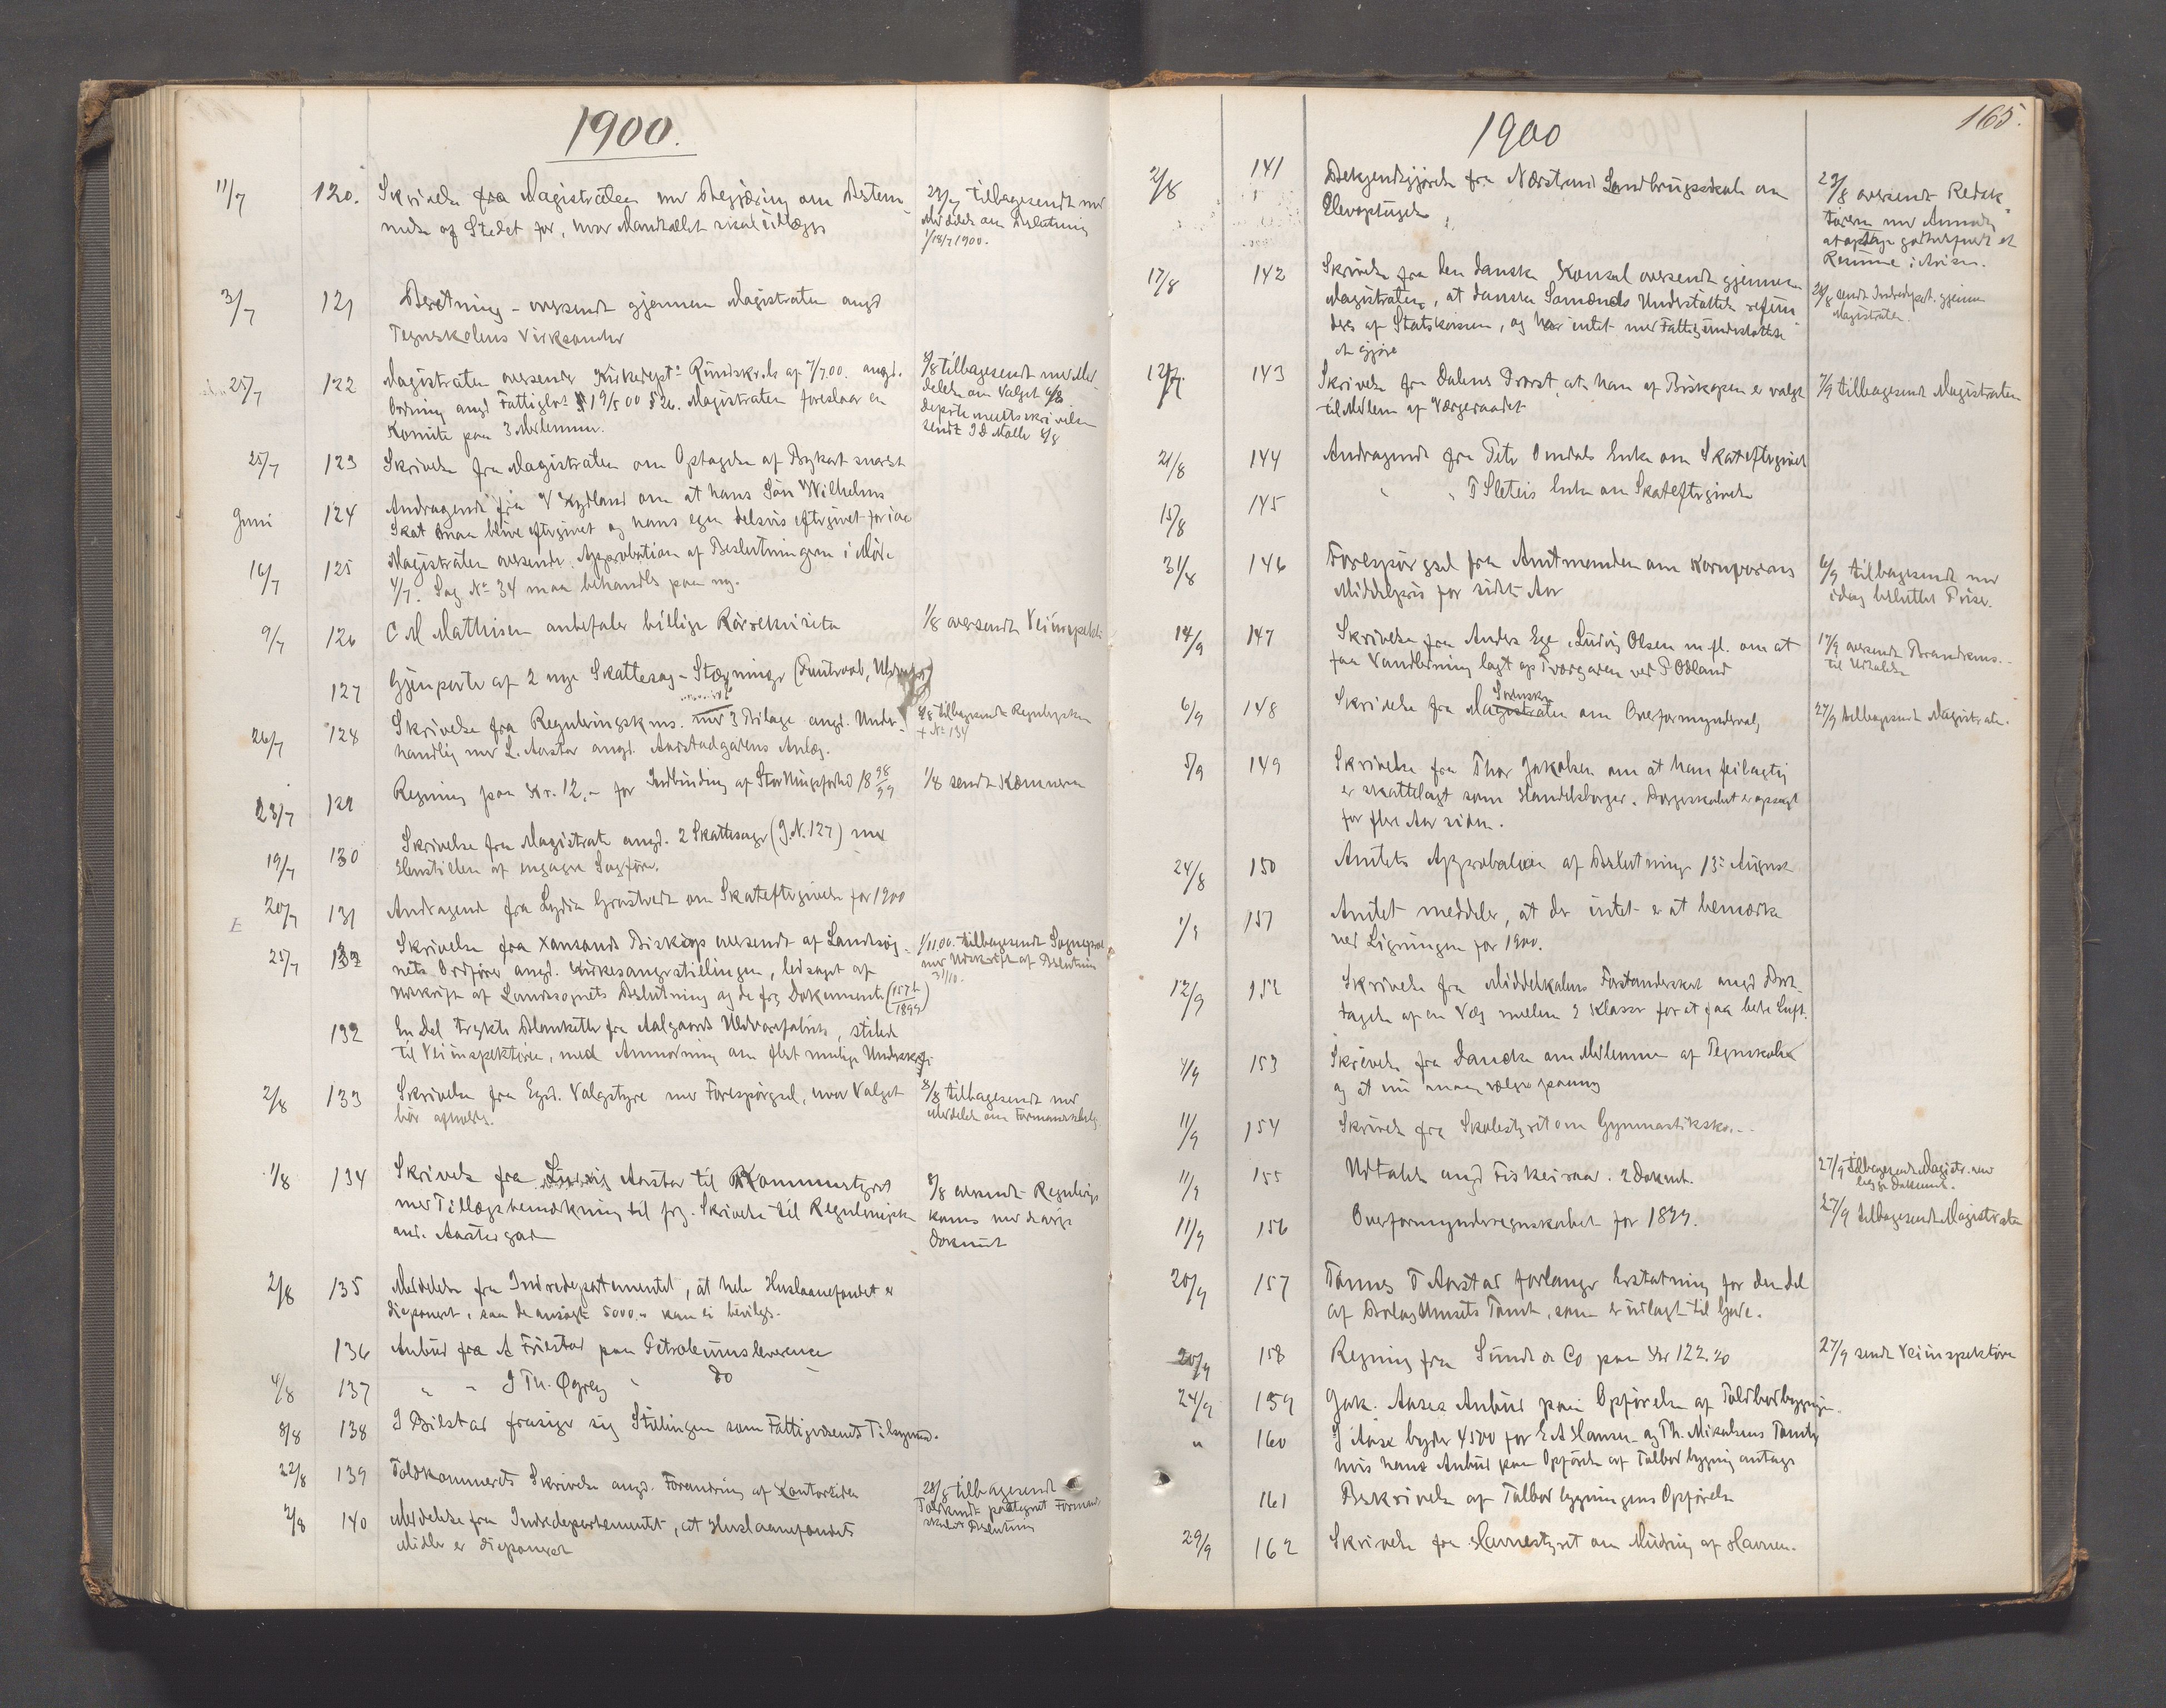 1900.
11/7 120. Skrivelse fra Magistraten med Begjæring om Bestem-
melse af Stedet for, hvor Mandtallet skal udlægges
tilbagesendt med
Meddelelse om Beslutning
18/7 1900.
3/7 121 Beretning - oversendt gjennem Magistraten angd
Tegneskolens Virksomhed
25/7 122 Magistraten oversender Kirkedepts Rundskr. af 7/7.00. angd.
Ordning angd Fattiglov 19/5 00 § 26. Magistraten foreslaar en
Komite paa 3 Medlemmer.
8/8 tilbagesendt med Med-
delelse om Valget
departementsskrivelse
sendt
25/7 123 Skrivelse fra Magistraten om Optagelse af Bykart snarest
Juni 124 Andragende fra V Kydland om at hans Søn Wilhelms
Skat maa blive eftergivet og hans egen delvis eftergivet for iaar
16/7 125 Magistraten oversender Approbation af Beslutningerne i Møde
4/7. Sag No 34 maa behandles paa ny.
9/7 126 C M Mathisen anbefaler billige Rørrekvisita
1/8 oversendt Veiinspekt.
127 Gjenparter af 2 nye Skattesag-Stævninger
26/7 128 Skrivelse fra Reguleringskms. med 3 Bilage angd. Under-
handling med L. Aarstad angd. Aarstadgadens Anlæg.
8/8 tilbagesendt Regulgskm
+ No 134
23/7 129 Regning paa Kr. 12,- for Indbinding af Storthingsforhd 1898/99
1/8 sendt Kæmneren
19/7 130 Skrivelse fra Magistrat angd. 2 Skattesager (J.N. 127) med
Henstillen at engagere Sagfører.
20/7 131 Andragende fra Lydia Grøstvedt om Skateftergivelse for 1900
25/7 132 Skrivelse fra Xansands Biskop oversendt af Landsog-
nets Ordfører angd. Kirkesangerstillingen, ledsaget af
Udskrift af Landsognets Beslutning og de frg Dokumenter (157b/1899)
1/11 00. tilbagesendt Sognepræst
med Udskrift af Beslutning
31/10.
132 En Del trykte Blanketter fra Aalgaards Uldvarefabrik, stilede
til Veiinspektøren, med Anmodning om flest mulige Underskr.
2/8 133 Skrivelse fra Egd. Valgstyre med Forespørgsel, hvor Valget
bør afholdes.
8/8 tilbagesendt med
Meddelelse om Formandskabs
1/8 134 Skrivelse fra Ludvig Aarstad til Kommunestyret
med Tillægsbemærkning til frg. Skrivelse til Reguleringskm
angd. Aarstadgaden
8/8 oversendt Regulergs
koms med de øvrige
Dokument
2/8 135 Meddelelse fra Indredepartementet, at hele Huslaanefondet er
disponeret, saa de ansøgte 5000.- kan ei bevilges.
136 Anbud fra A Friestad paa Petroleumsleverance
4/8 137 " " J Th. Øgrey " do
8/8 138 J Bilstad frasiger sig Stillingen som Fattigvæsenets Tilsynsmd.
22/8 139 Toldkammerets Skrivelse angd. Forandring af Kontortiden
28/8 tilbagesendt
Toldkmdt paategnet Formand-
skabets Beslutning
2/8 140 Meddelelse fra Indredepartementet, at Huslaanefondets
Midler er disponeret
1900
165.
2/8 141 Bekjendtgjørelse fra Nærstrand Landbrugsskole om
Elevoptagelse
23/8 oversendt Redak-
tøren med Anmodn.
at optage godtbefunet et
Resume i Avisen.
17/8 142 Skrivelse fra den danske Konsul oversendt gjennem
Magistraten, at danske Sømænds Understøttelse refun-
deres af Statskassen, og har intet med Fattigunderstøttelse
at gjøre
28/8 sendt Indredepart. gjennem
Magistraten.
143 Skrivelse fra Dalens Provst, at han af Biskopen er valgt
til Medlem af Værgeraadet
7/9 tilbagesendt Magistraten
21/8 144 Andragende fra Peter Omdals Enke om Skateftergivelse
15/8 145 " " T Sleteis Enke om Skateftergivelse
31/8 146 Forespørgsel fra Amtmanden om Kornpriser
Middelpris for sidste Aar
6/9 tilbagesendt med
idag besluttet Priser.
14/9 147 Skrivelse fra Anders Ege, Ludvig Olsen m.fl. om at
faa Vandledning lagt op Tværgaden ved P Odland
17/9 oversendt Brandkms.
til Udtalelse
6/9 148 Skrivelse fra Magistraten om Overformyndervalg
27/9 tilbagesendt Magistraten.
5/9 149 Skrivelse fra Thor Jakobsen om at han feilagtig
er skattelagt som Handelsborger. Borgerskabet er opsagt
for flere Aar siden.
24/8 150 Amtets Approbation af Beslutninger 13de August
1/9 151 Amtet meddeler, at der intet er at bemærke
ved Ligningen for 1900.
12/9 152 Skrivelse fra Middelskolens Forstanderskab angd Bort-
tagelse af en Væg mellem 2 Klasser for at faa bedre Luft.
4/9 153 Skrivelse fra Dancke om Medlemmer af Tegneskolen
og at nu maa vælges paany
11/9 154 Skrivelse fra Skolestyret om Gymnastiksko...
11/9 155 Udtalelse angd Fiskeiraad. 2 Dokmt.
27/9 tilbagesendt Magistr. med
begge Dokument.
11/9 156 Overformynderregnskabet for 1899.
27/9 tilbagesendt Magistraten
20/9 157 Tønnes T Aarstad forlanger Erstatning for den Del
af Bolaghusets Tomt, som er udlagt til Gade.
20/9 158 Regning fra Sunde & Co paa Kr 122.20
27/9 sendt Veiinspektøren
24/9 159 Jak. Aases Anbud paa Opførelse af Toldbodbygningen.
" 160 J Aase byder 4500 for E A Hansen- og Th. Mikalsens Tomter
hvis hans Anbud paa Opførelse af Tolbodbygning antages
161 Beskrivelse af Tolbodbygningens Opførelse
29/9 162 Skrivelse fra Havnestyret om Mudring af Havnen.